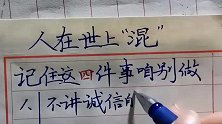 人在世上“混”
记住这四件事咱别做
人不讲诚信的